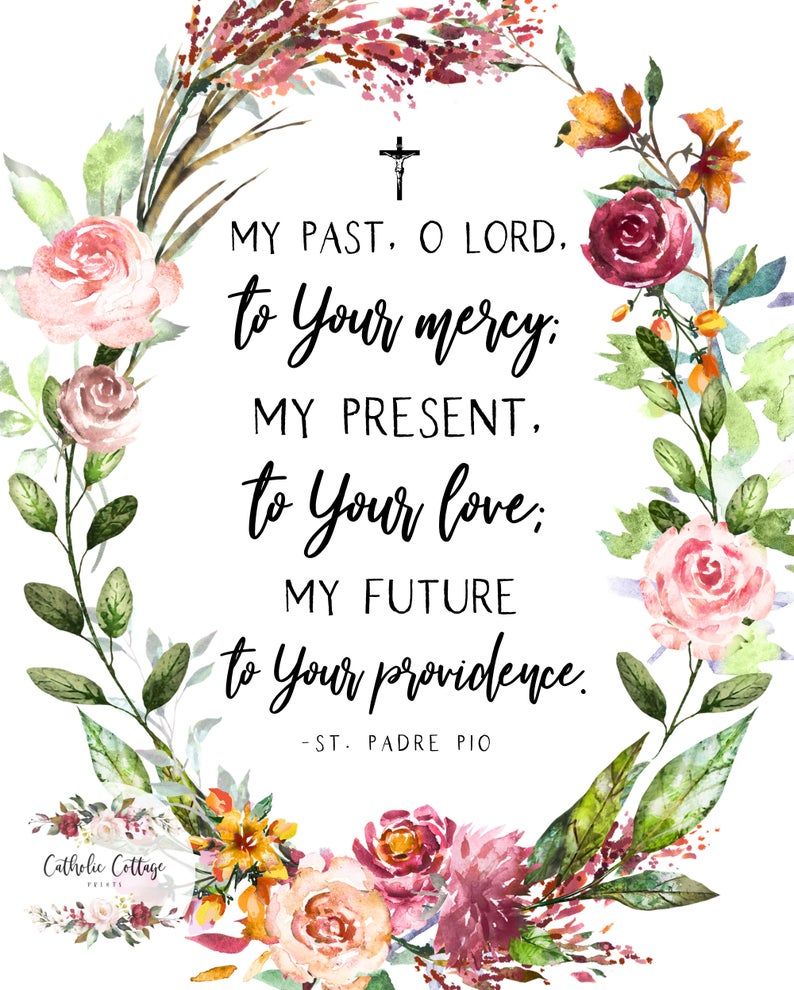 MY PAST, O LORD,
to Your mercy;
MY PRESENT,
to Your love;
MY FUTURE
to Your providence.
-ST. PADRE PIO
Catholic Cottage
PRINTS